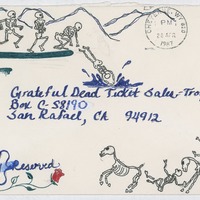 PM
1987
Grateful Dead Ticket Sales-
Box C-S8190
San Rafael, CA 94912
Reserved